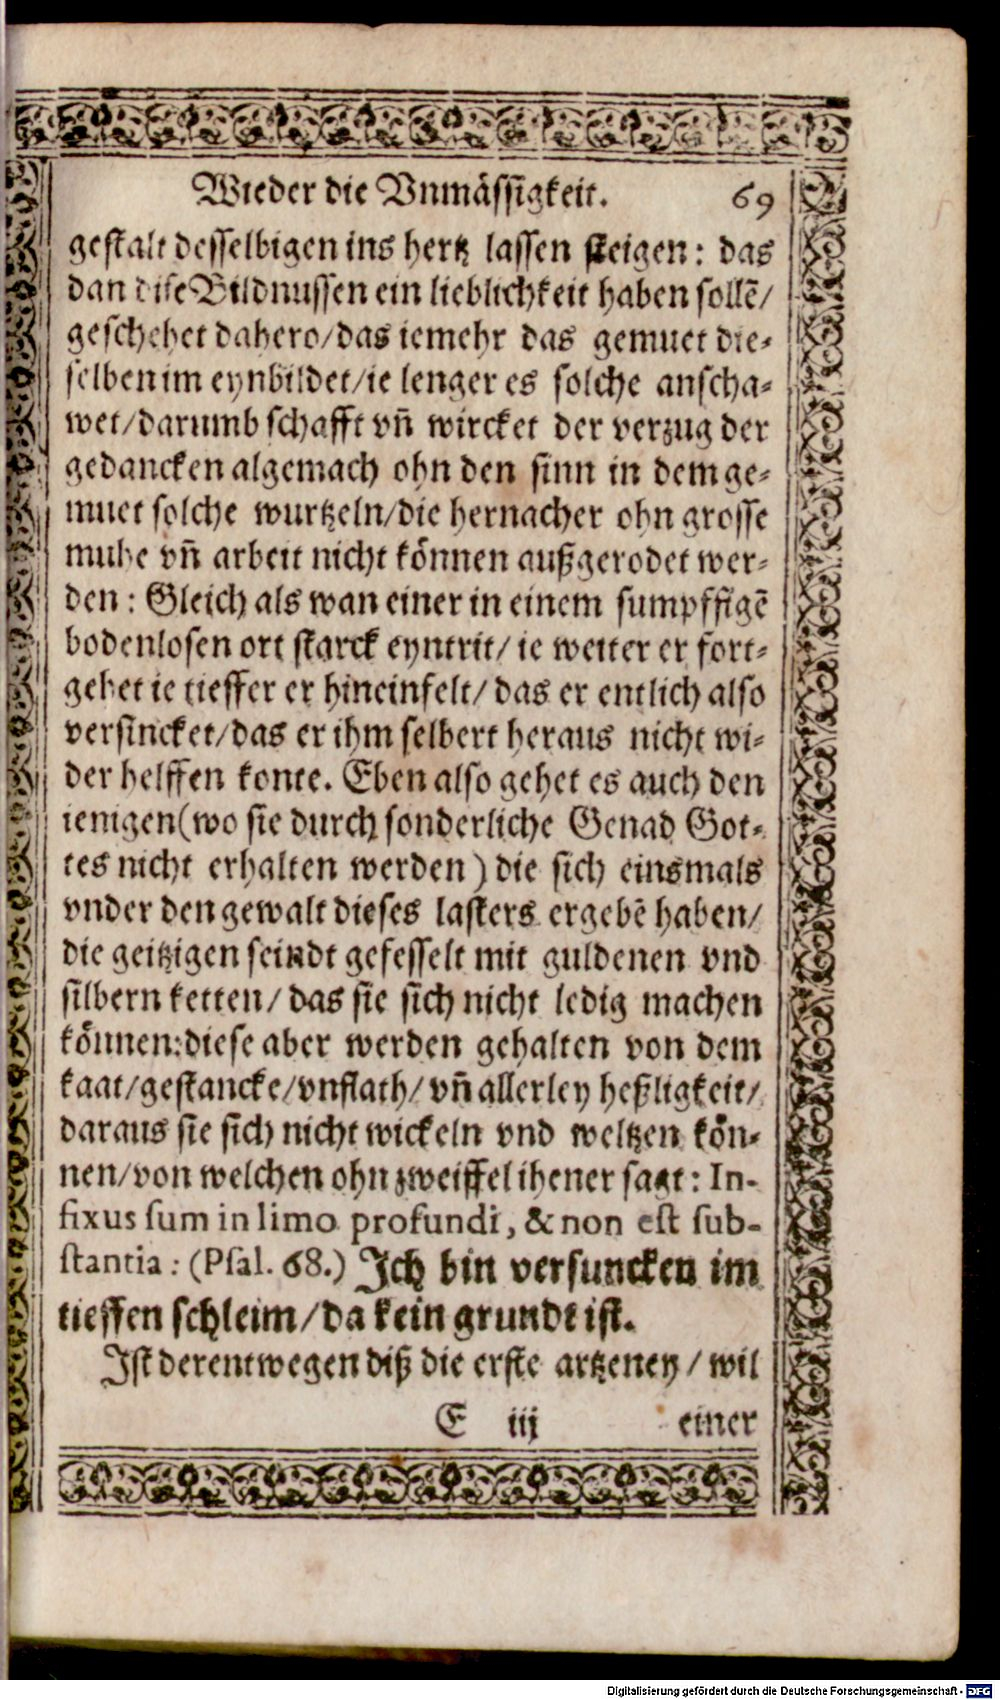 Wieder die Vnmässigkeit. 69
gestalt desselbigen ins hertz lassen steigen: das
dan dise Bildnussen ein lieblichkeit haben sollē/
geschehet dahero/das iemehr das gemuet die-
selben im eynbildet/ie lenger es solche anscha-
wet/darumb schafft vñ wircket der verzug der
gedancken algemach ohn den sinn in dem ge-
muet solche wurtzeln/die hernacher ohn grosse
muhe vñ arbeit nicht können außgerodet wer-
den: Gleich als wan einer in einem sumpffigē
bodenlosen ort starck eyntrit/ ie weiter er fort-
gehet ie tieffer er hineinfelt/ das er entlich also
versincket/das er ihm selbert heraus nicht wi-
der helffen konte. Eben also gehet es auch den
ienigen(wo sie durch sonderliche Genad Got-
tes nicht erhalten werden) die sich einsmals
vnder den gewalt dieses lasters ergebē haben/
die geitzigen seindt gefesselt mit guldenen vnd
silbern ketten/ das sie sich nicht ledig machen
können:diese aber werden gehalten von dem
kaat/gestancke/vnflath/ vñ allerley heßligkeit/
daraus sie sich nicht wickeln vnd weltzen kön-
nen/von welchen ohn zweiffel ihener sagt: In-
fixus sum in limo profundi, & non est sub-
stantia: (Psal. 68.) Ich bin versuncken im
tieffen schleim/da kein grundt ist.
Ist derentwegen diß die erste artzeney/ wil
E iij einer
Digitalisierung gefördert durch die Deutsche Forschungsgemeinschaft - DFG